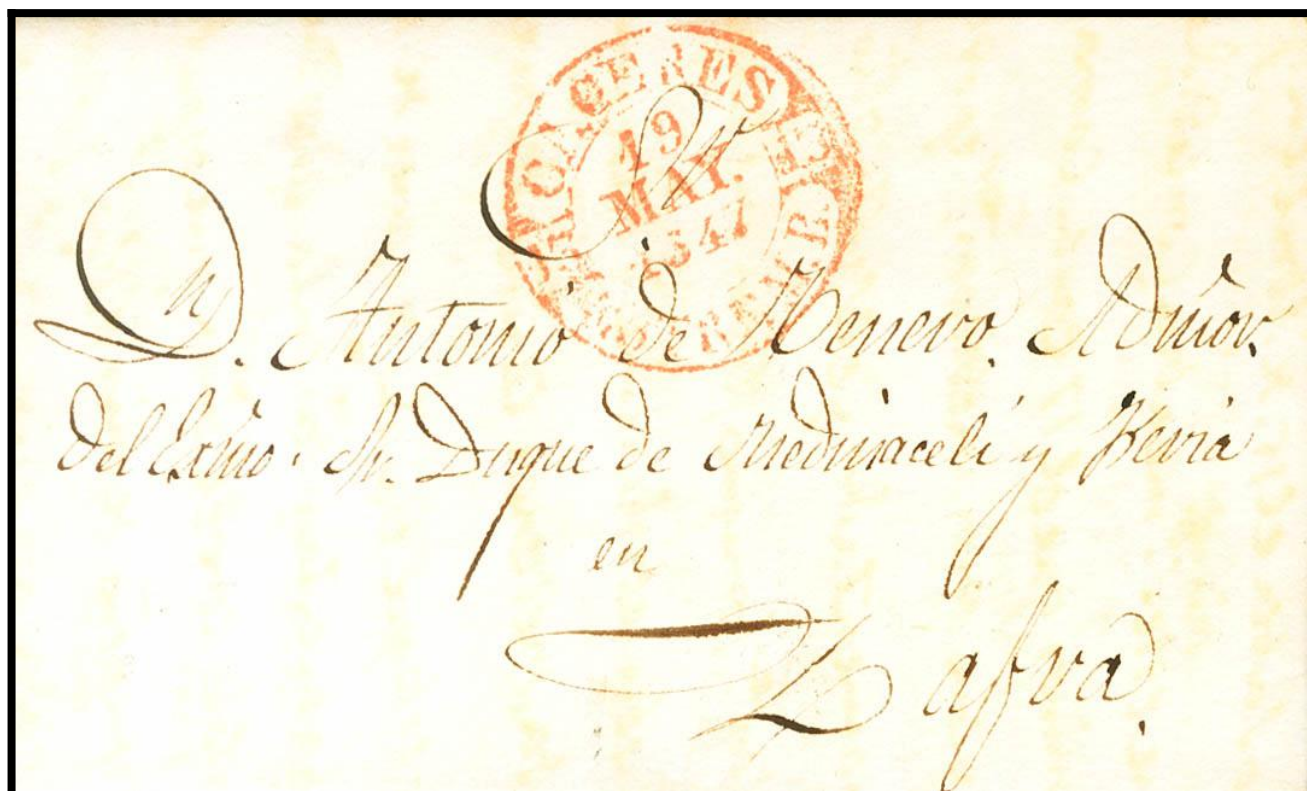 19
MAY.
1847
Sr
Dn. Antonio de Venero, Admor.
del Exmo. Sr. Duque de Medinaceli y Feria
en
Zafra.